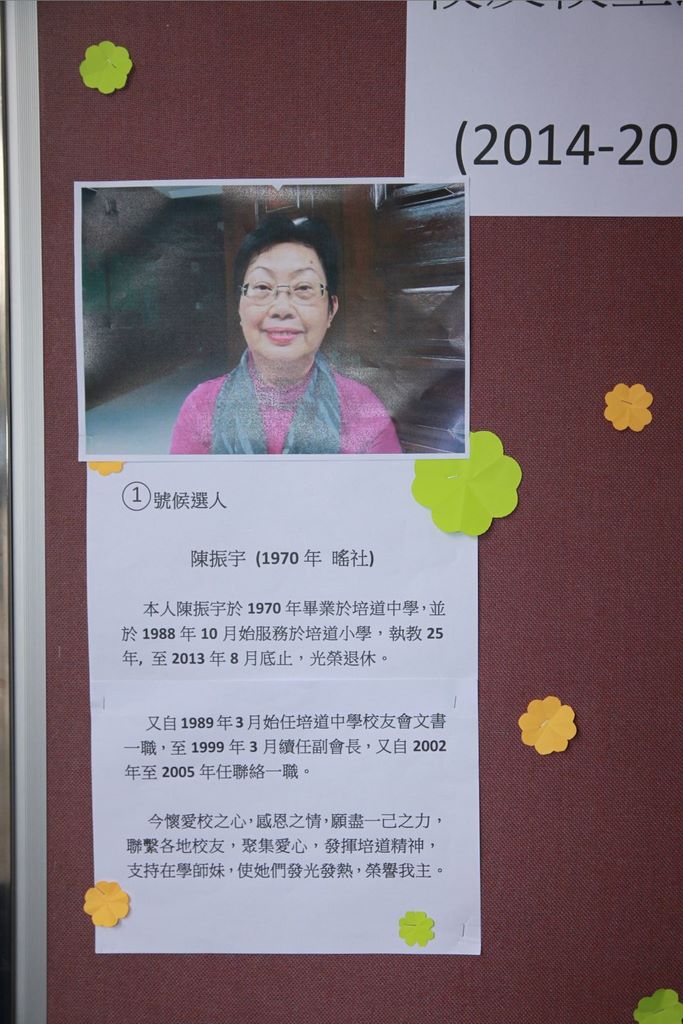 (2014-20
①號候選人
陳振宇 (1970 年 瑤社)
本人陳振宇於 1970 年畢業於培道中學，並
於 1988 年 10 月始服務於培道小學，執教 25
年，至 2013 年 8 月底止，光榮退休。
又自 1989 年 3 月始任培道中學校友會文書
一職，至 1999 年 3 月續任副會長，又自 2002
年至 2005 年任聯絡一職。
今懷愛校之心，感恩之情，願盡一己之力，
聯繫各地校友，聚集愛心，發揮培道精神，
支持在學師妹，使她們發光發熱，榮譽我主。